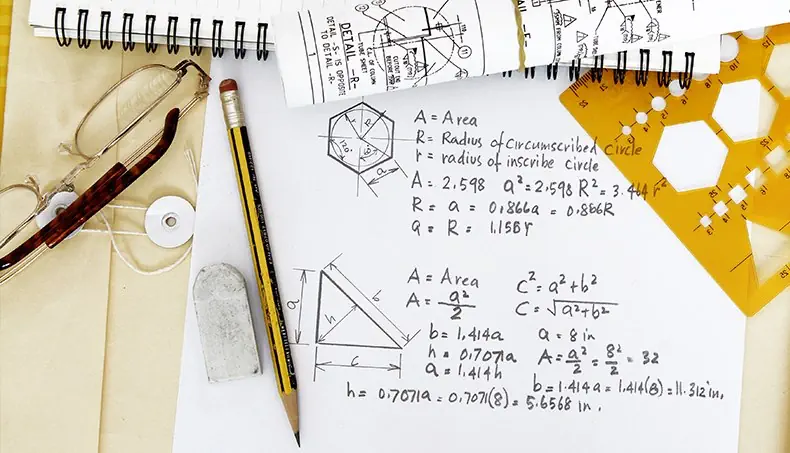 DETAIL -R-
DETAIL -S- IS OPPOSITE
TO DETAIL -R-
DETAIL -F-
A = Area
R = Radius of Circumscribed Circle
r = radius of inscribe circle
A = 2.598 a² = 2.598 R² = 3.464 r²
R = a = 0.866a = 0.866R
a = R = 1.15
120°
60°
R
r
a
A = Area
A = a²/2
b = 1.414a
h = 0.7071a
a = 1.414h
c² = a² + b²
C = √a²+b²
a = 8 in
A = a²/2 = 8²/2 = 32
b = 1.414a = 1.414(8) = 11.312 in.
h = 0.7071a = 0.7071(8) = 5.6568 in.
a
b
h
c